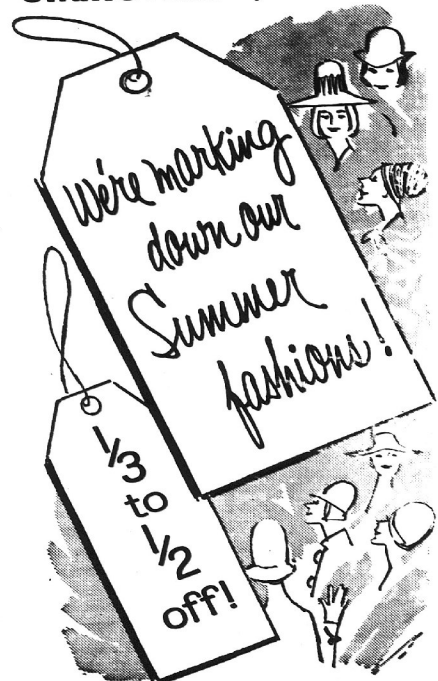 We're marking
down our
Summer
fashions!
1/3
to
1/2
off!